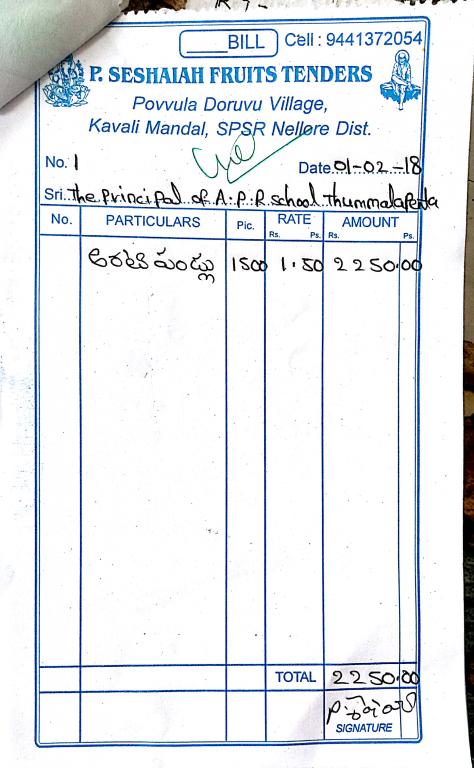 BILL Cell : 9441372054
P. SESHAIAH FRUITS TENDERS
Povvula Doruvu Village,
Kavali Mandal, SPSR Nellore Dist.
No. 1 Date 01-02-18
Sri. The Principal of A.P.R school Thummalapenta
No. PARTICULARS Pic. RATE AMOUNT
Rs. Ps. Rs. Ps.
అరటి పండ్లు 1500 1.50 2250.00
TOTAL 2250.00
SIGNATURE